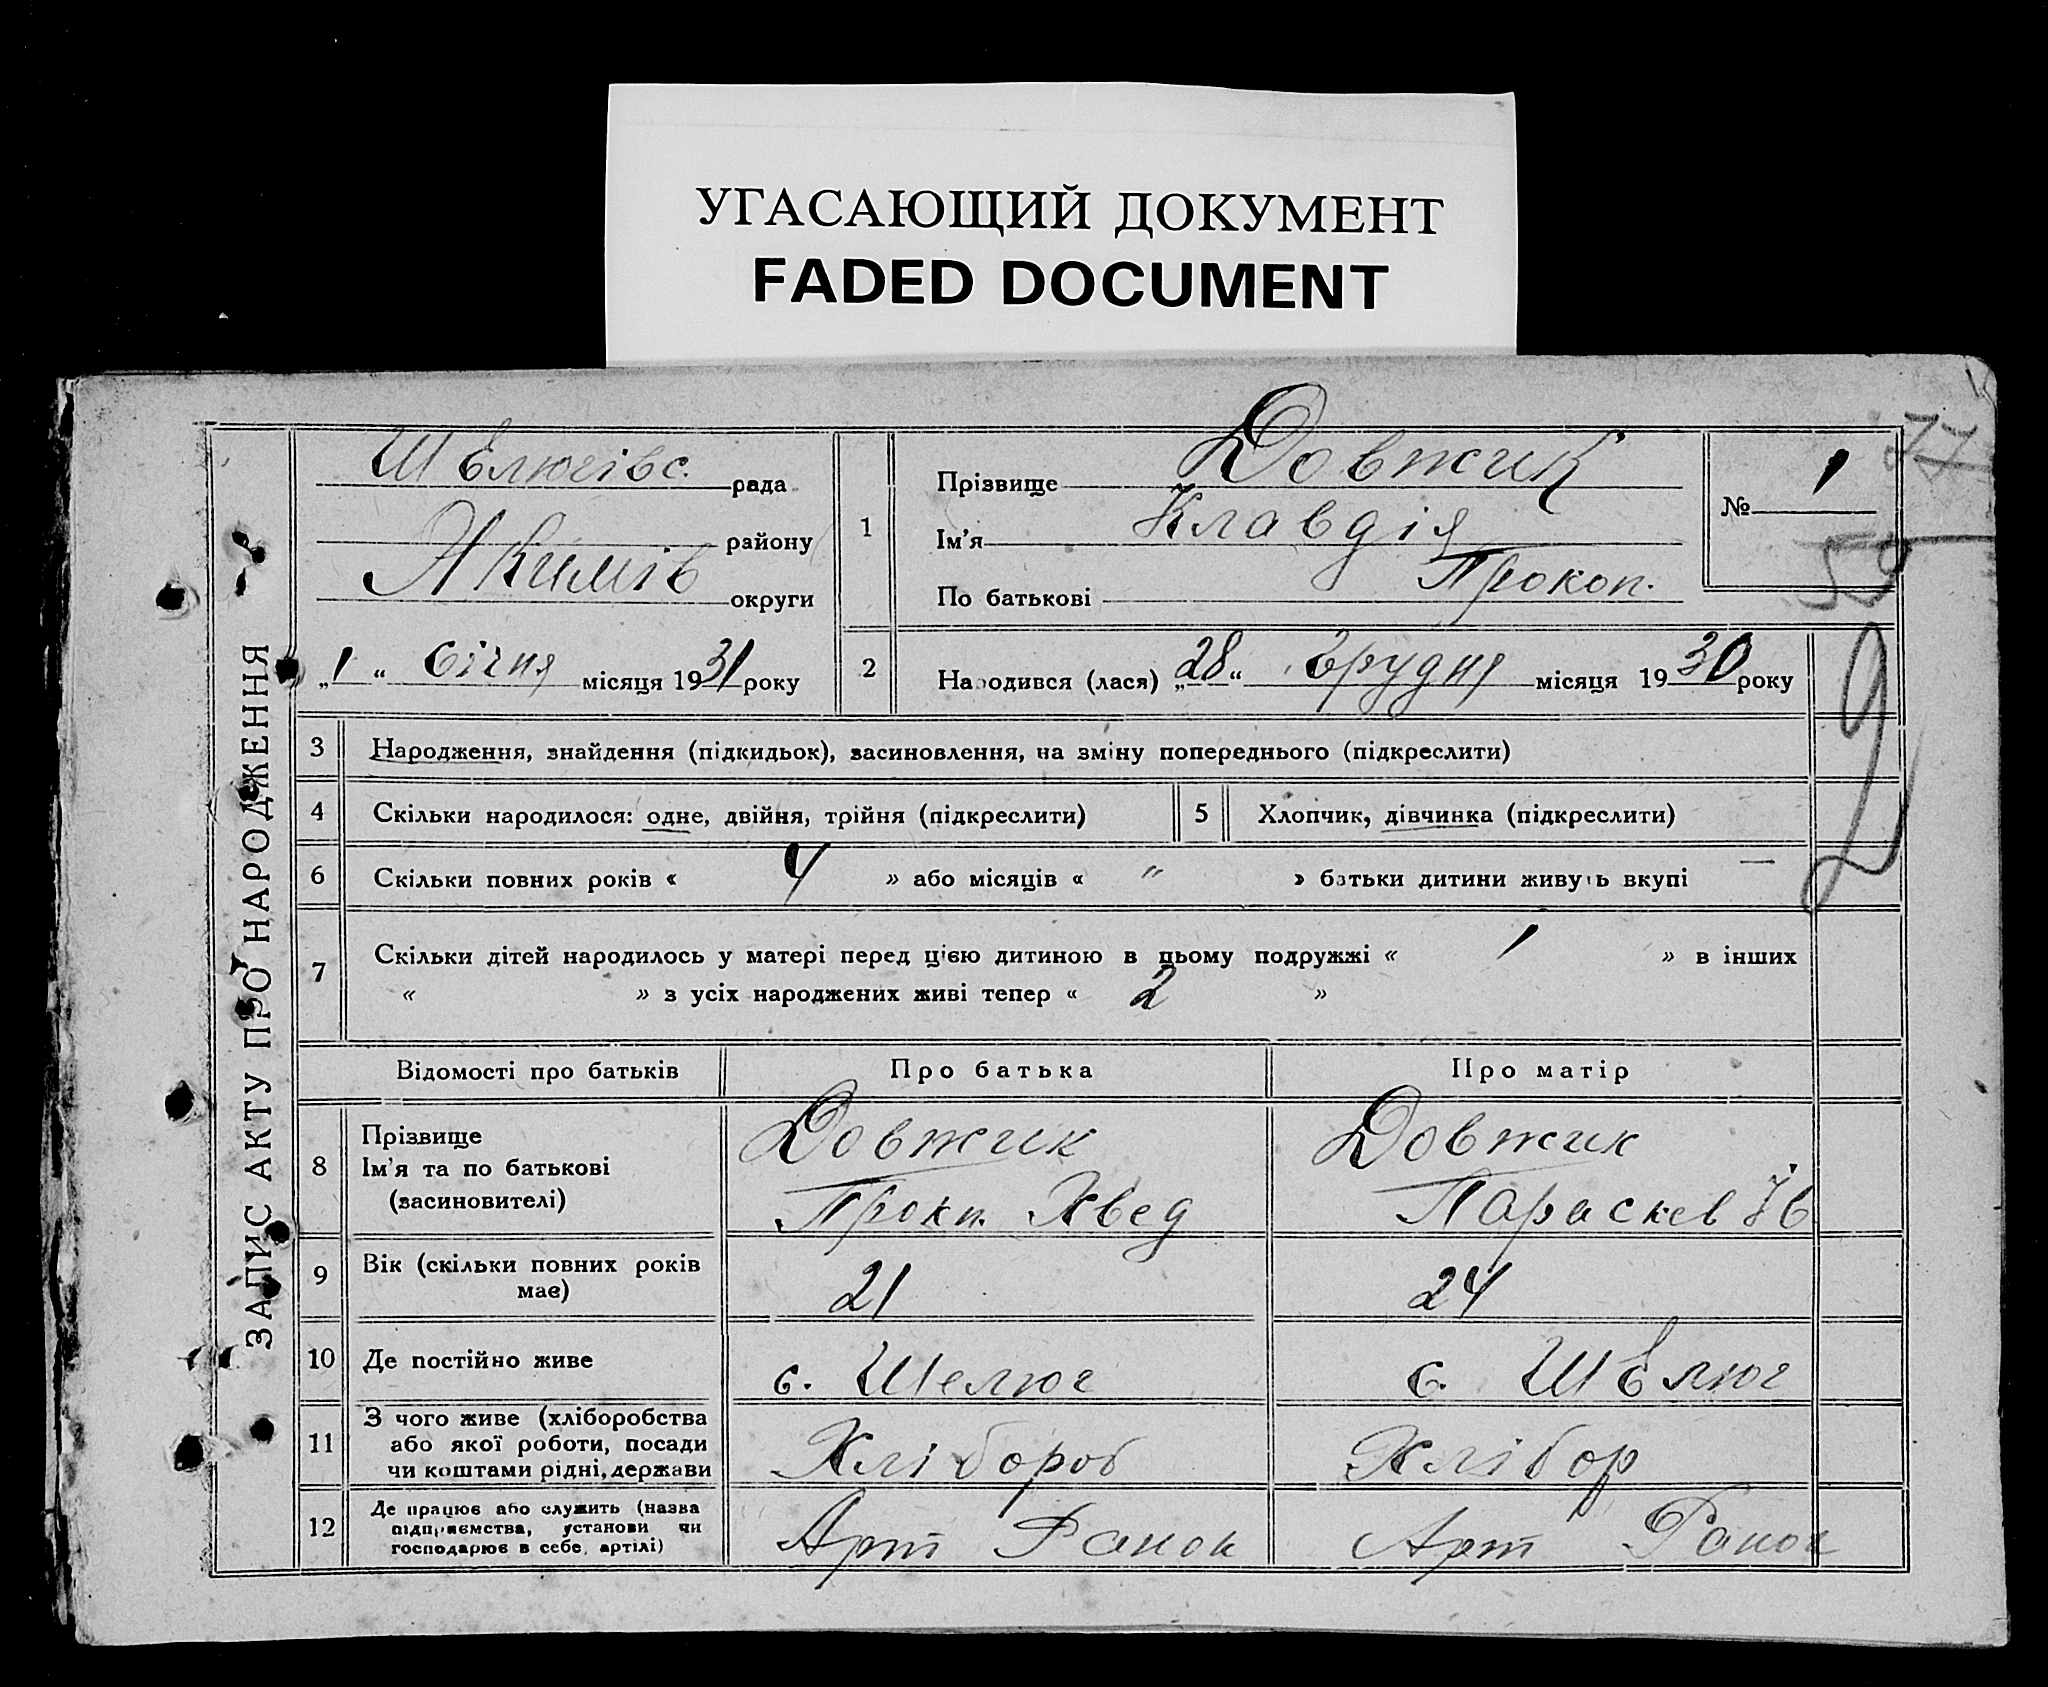 УГАСАЮЩИЙ ДОКУМЕНТ
FADED DOCUMENT
77
59
2
ЗАПИС АКТУ ПРО НАРОДЖЕННЯ
Шелюгівс. рада
району
Якимів округи
„1“ січня місяця 1931 року
1
Прізвище Довжик
Ім'я Клавдія
По батькові Прокоп.
№ 1
2 Народився (лася) „28“ грудня місяця 1930 року
3 Народження, знайдення (підкидьок), засиновлення, на зміну попереднього (підкреслити)
4 Скільки народилося: одне, двійня, трійня (підкреслити)
5 Хлопчик, дівчинка (підкреслити)
6 Скільки повних років « 4 » або місяців « " » батьки дитини живуть вкупі —
7 Скільки дітей народилось у матері перед цією дитиною в цьому подружжі « 1 » в інших
« » з усіх народжених живі тепер « 2 »
Відомості про батьків Про батька Про матір
8 Прізвище Довжик Довжик
Ім'я та по батькові
(засиновителі) Прокп. Хвед Параскев
9 Вік (скільки повних років
має) 21 24
10 Де постійно живе с. Шелюг с. Шелюг
11 З чого живе (хліборобства
або якої роботи, посади Хлібороб Хлібор
чи коштами рідні, держави
12 Де працює або служить (назва
підприємства, установи чи Арт Ранок Арт Ранок
господарює в себе, артілі)